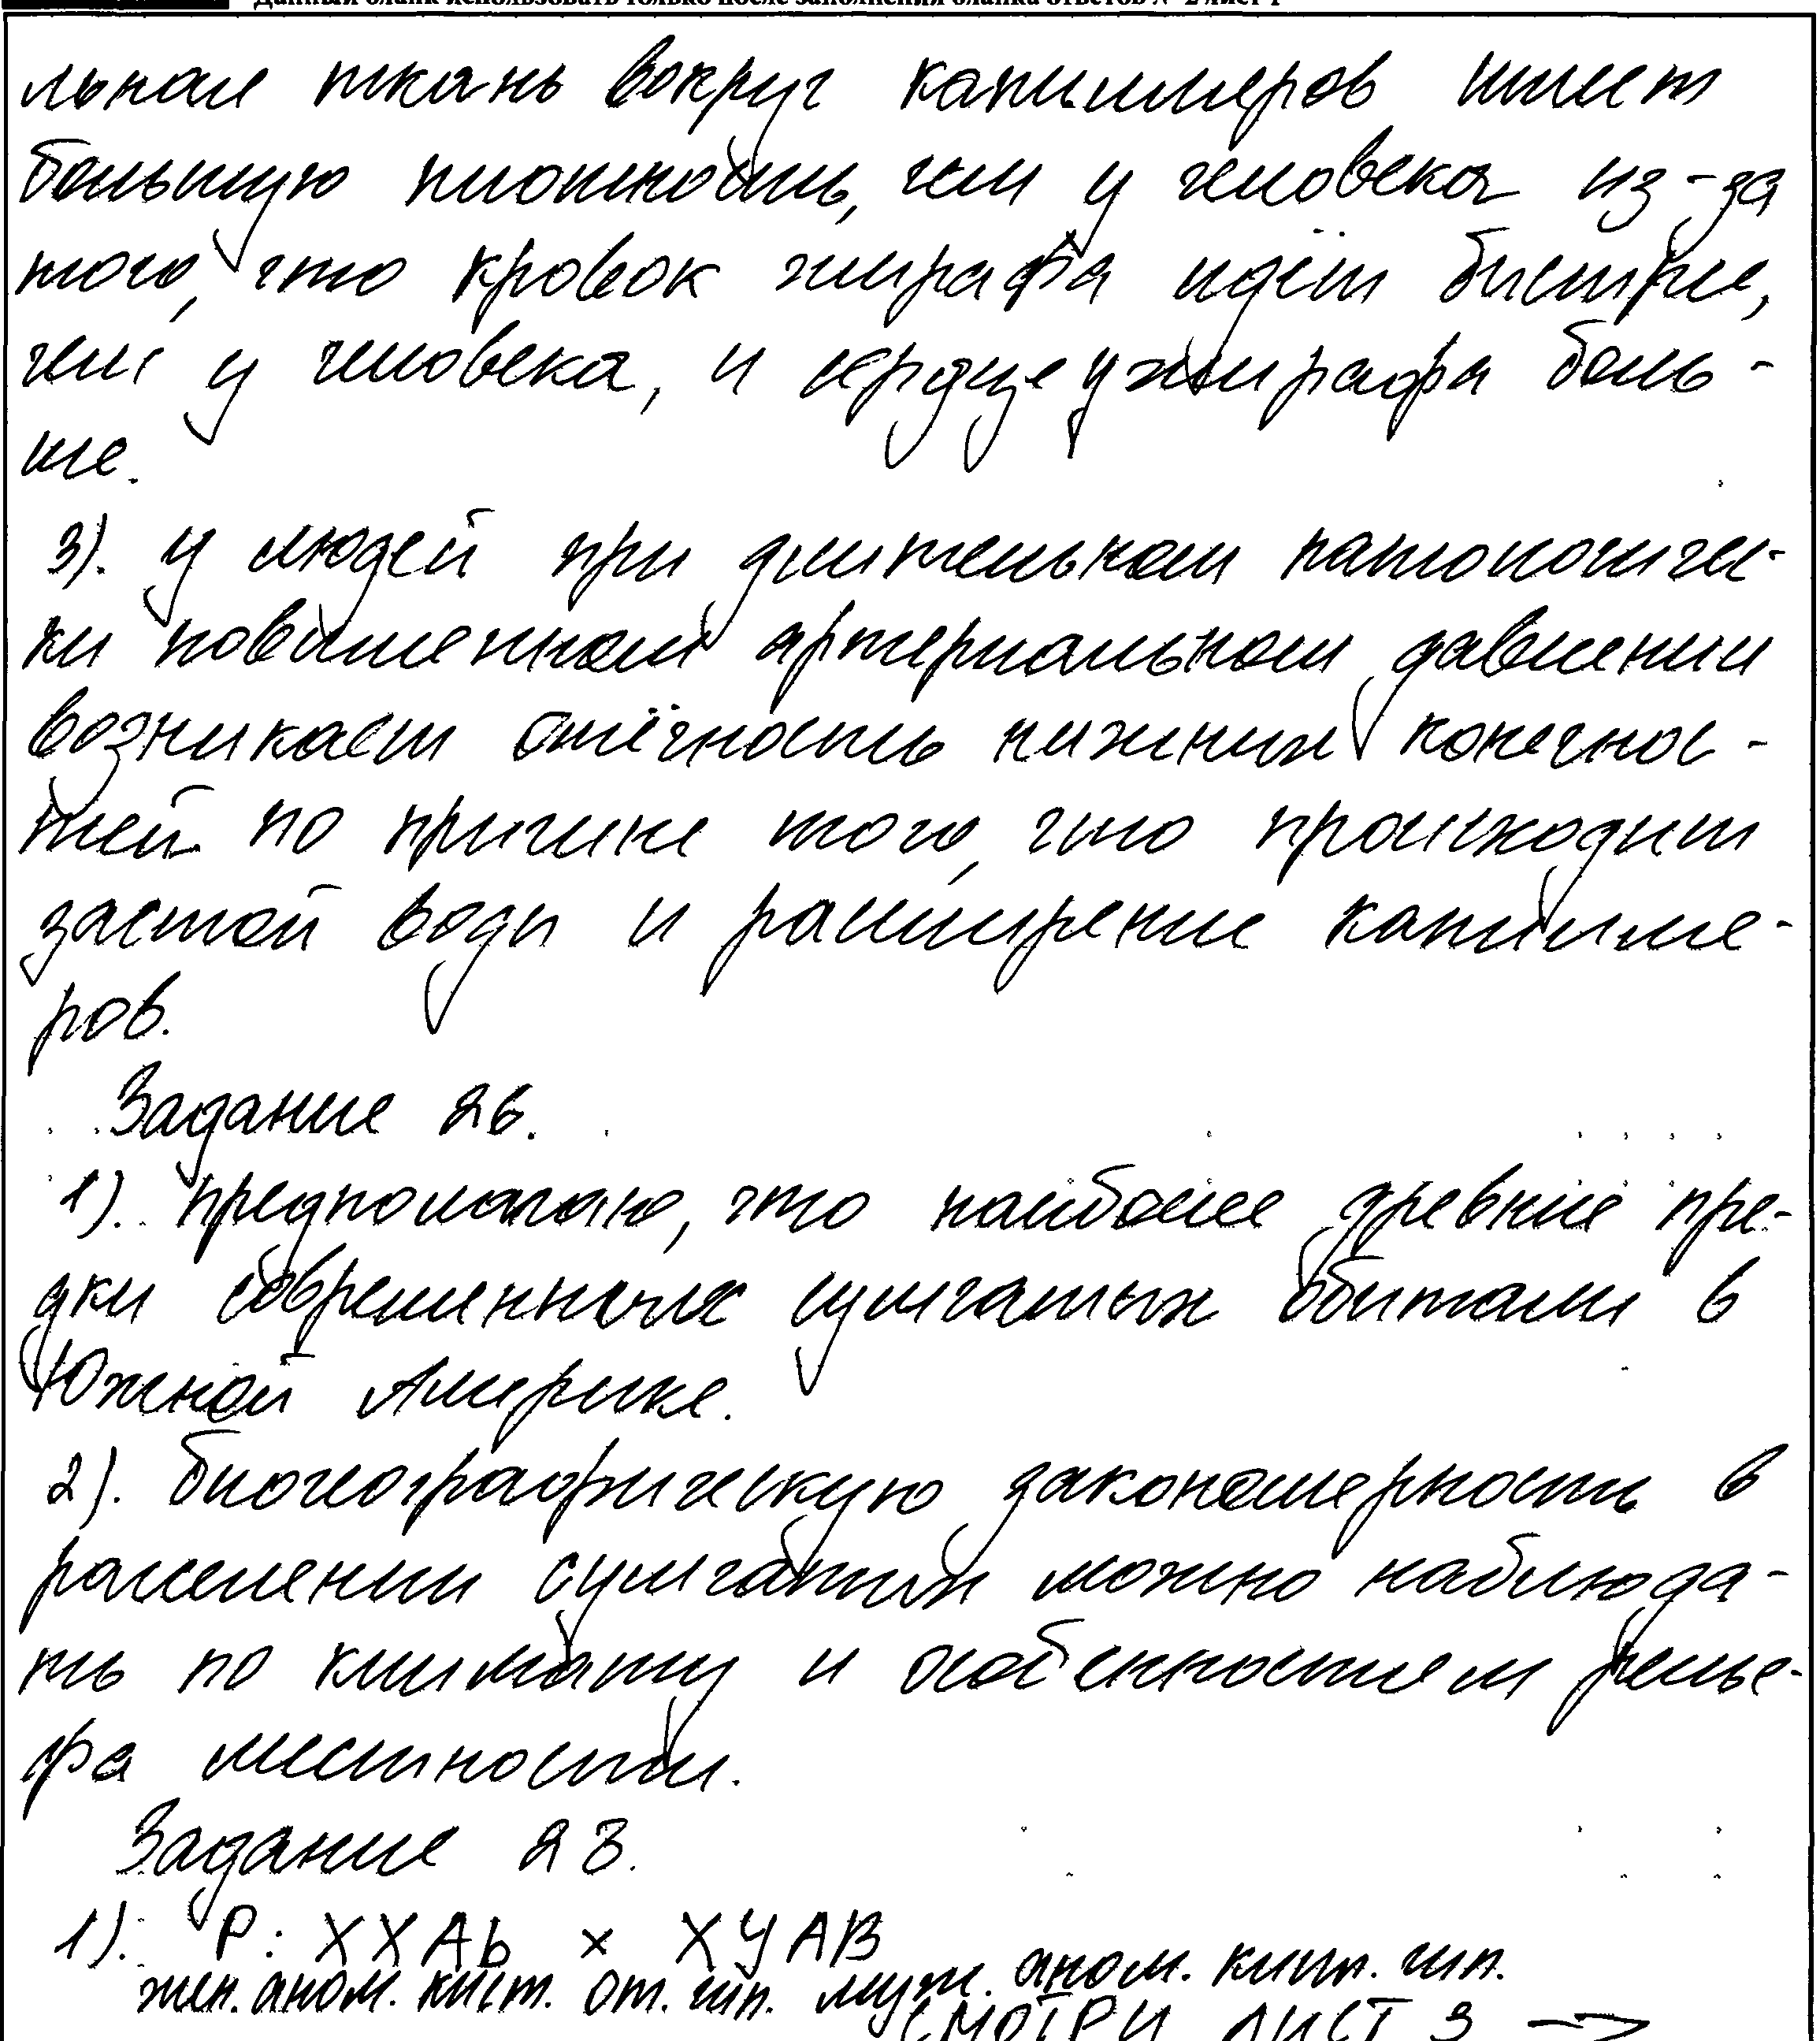 Данный бланк использовать только после заполнения бланка ответов № 2 лист 1
льная ткань вокруг капилляров имеет
большую плотность, чем у человека из-за
того, что кровок жирафа идёт быстрее,
чем у человека, и сердце у жирафа боль-
ше.
3). у людей при длительном патологичес-
ки повышенном артериальном давлении
возникает отёчность нижних конечнос-
тей по причине того, что происходит
застой воды и расширение капилля-
ров.
Задание 26.
1). предполагаю, что наиболее древние пре-
дки современных сумчатых обитали в
Южной Америке.
2). биогеографическую закономерность в
расселении сумчатых можно наблюда-
ть по климату и особенностям релье-
фа местности.
Задание 28.
1). P: XXAb × XYAB
жен. аном. кист. от. шп. муж. аном. кист. шп.
СМОТРИ ЛИСТ 3 →